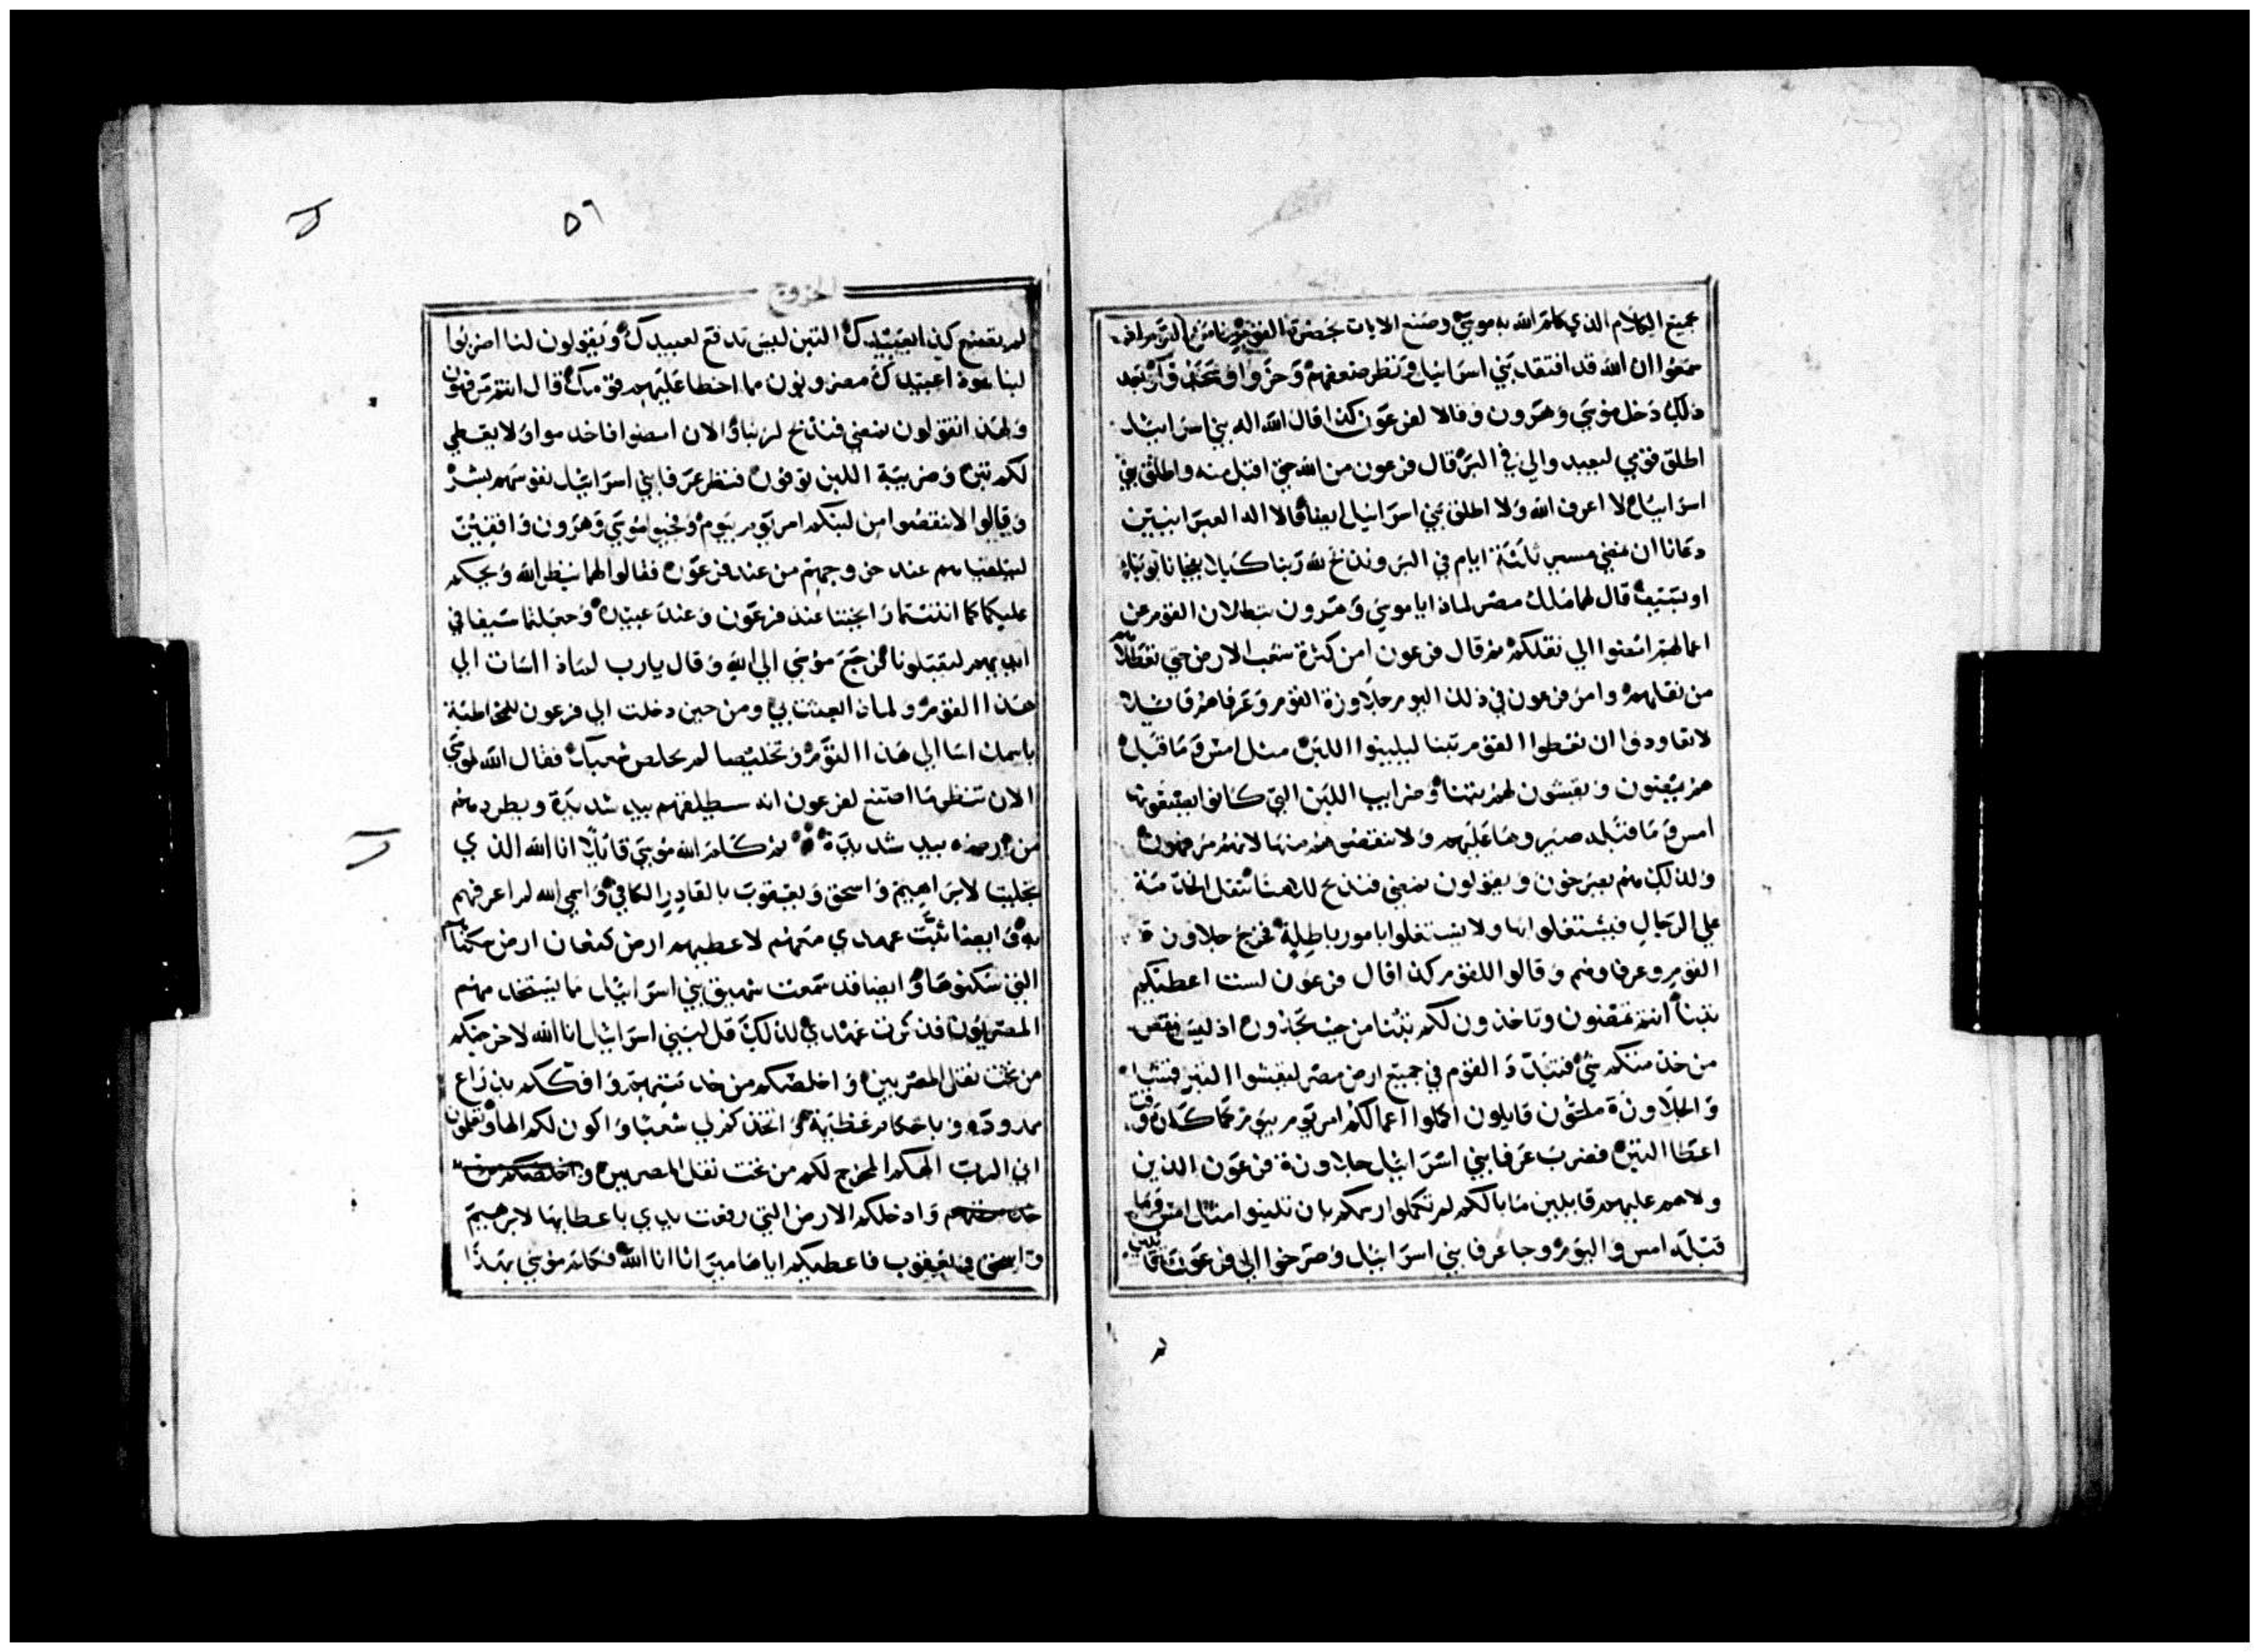 جميع الكلام الذي كلم الله به موسي وصنع الايات بحضرة القوم
سمعوا ان الله قد افتقد بني اسراييل ونظر ضعفهم وخروا وبعد
ذلك دخل موسي وهرون وقالا لفرعون كذا قال الله اله بني اسراييل
اطلق قومي ليعيدوا لي في البر قال فرعون من الله حتي اقبل منه واطلق بني
اسراييل لا اعرف الله ولا اطلق بني اسراييل ايضا قالا اله العبرانيين
دعانا ان نمضي مسير ثلثة ايام في البر ونذبح لله ربنا كيلا يفجانا بوباء
او بسيف قال لهما ملك مصر لماذا يا موسي وهرون تبطلان القوم عن
اعمالهم امضوا الي ثقلكم ثم قال فرعون امن كثرة شعب الارض حتي تعطلاهم
من ثقلهم وامر فرعون في ذلك اليوم جلاوزة القوم وعرفاهم قايلا
لا تعاودوا ان تعطوا القوم تبنا ليلبنوا اللبن مثل امس وما قبله
هم يمضون ويقشون لهم تبنا وضرايب اللبن التي كانوا يصنعونها
امس وما قبله صيروها عليهم ولا تنقصوهم منها لانهم مرفهون
ولذلك هم يصرخون ويقولون نمضي فنذبح لالاهنا تثقل الخدمة
علي الرجال فيشتغلوا بها ولا يشتغلوا بامور باطلة فخرج جلاوزة
القوم وعرفاوهم وقالوا للقوم كذا قال فرعون لست اعطيكم
تبنا انتم تمضون وتاخذون لكم تبنا من حيث تجدون اذ ليس ينقص
من خدمتكم شي فتبدد القوم في جميع ارض مصر ليقشوا القش تبنا
والجلاوزة ملحون قايلون اكملوا اعمالكم امر يوم بيوم كما كان وقت
اعطا التبن فضرب عرفا بني اسراييل جلاوزة فرعون الذين
ولاهم عليهم قايلين ما بالكم لم تكملوا رسمكم بان تلبنوا امثال امس وما
قبله امس واليوم وجا عرفا بني اسراييل وصرخوا الي فرعون قايلين
٥٦
الخروج
لم يصنع كذا بعبيدك التبن ليس يدفع لعبيدك ويقولون لنا اضربوا
لبنا هوذا عبيدك مضروبون مما اخطا عليهم قومك قال انتم مرفهون
ولهذا تقولون نمضي فنذبح لربنا والان امضوا فاخدموا ولا يعطي
لكم تبن وضريبة اللبن توفون فنظر عرفا بني اسراييل نفوسهم بشر
وقالوا لا تنقصوا من لبنكم امر يوم بيوم وفجيوا موسي وهرون واقفين
ليتلقياهم عند خروجهم من عند فرعون فقالوا لهما ينظر الله ويحكم
عليكما كما انتنتما رايحتنا عند فرعون وعند عبيده وجعلتما سيفا في
ايديهم ليقتلونا فرجع موسي الي الله وقال يارب لماذا اسات الي
هذا القوم ولماذا بعثت بي ومن حين دخلت الي فرعون للمخاطبة
باسمك اسا الي هذا القوم وتخليصا لم تخلص شعبك فقال الله لموسي
الان تنظر ما اصنع لفرعون انه سيطلقهم بيد شديدة ويطردهم
من ارضه بيد شديدة ثم كلم الله موسي قايلا انا الله الذي
تجليت لابراهيم واسحق ويعقوب بالقادر الكافي واسمي الله لم اعرفهم
به وايضا ثبت عهدي معهم لاعطيهم ارض كنعان ارض سكناهم
التي سكنوها وايضا قد سمعت شهيق بني اسراييل مما يستخدمهم
المصريون فذكرت عهدي لذلك قل لبني اسراييل انا الله لاخرجكم
من تحت ثقل المصريين واخلصكم من خدمتهم وافككم بذراع
ممدودة وباحكام عظيمة واتخذكم لي شعبا واكون لكم الها وتعلمون
اني الرب الهكم المخرج لكم من تحت ثقل المصريين واخلصكم من
خدمتهم وادخلكم الارض التي رفعت يدي باعطايها لابرهيم
واسحق ويعقوب فاعطيكم اياها ميراثا انا الله فكلم موسي بهذا